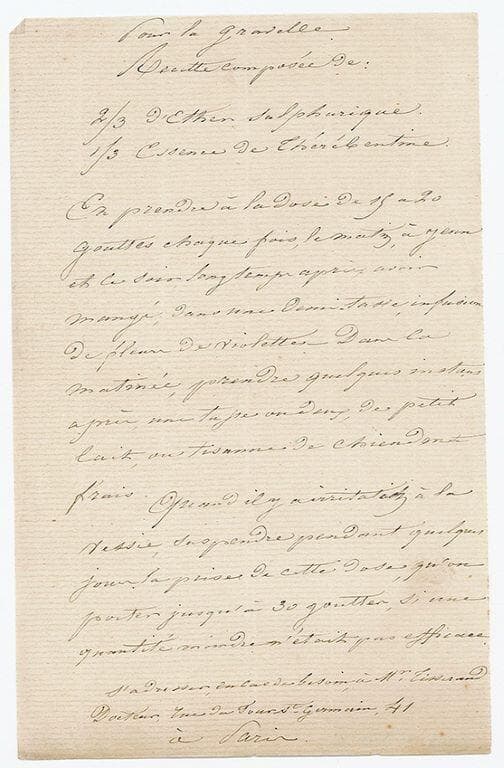 Pour la gravelle.
Recette composée de:
2/3 d'Ether sulphurique.
1/3 Essence de Thérébentine.
En prendre à la dose de 15 a 20
gouttes chaque fois le matin, à jeun
et le soir longtemps après avoir
mangé, dans une demi tasse infusion
de fleurs de violettes. Dans la
matinée, prendre quelques instans
après, une tasse ou deux, de petit
lait, ou tisanne de chiendent
frais. Quand il y a irritation à la
vessie, suspendre pendant quelques
jours la prise de cette dose, qu'on
porter jusqu'à 30 gouttes, si une
quantité moindre n'était pas efficace.
S'adresser, en cas de besoin, à Mr. Tisserand
Docteur, rue du Four St. Germain, 41
à Paris.